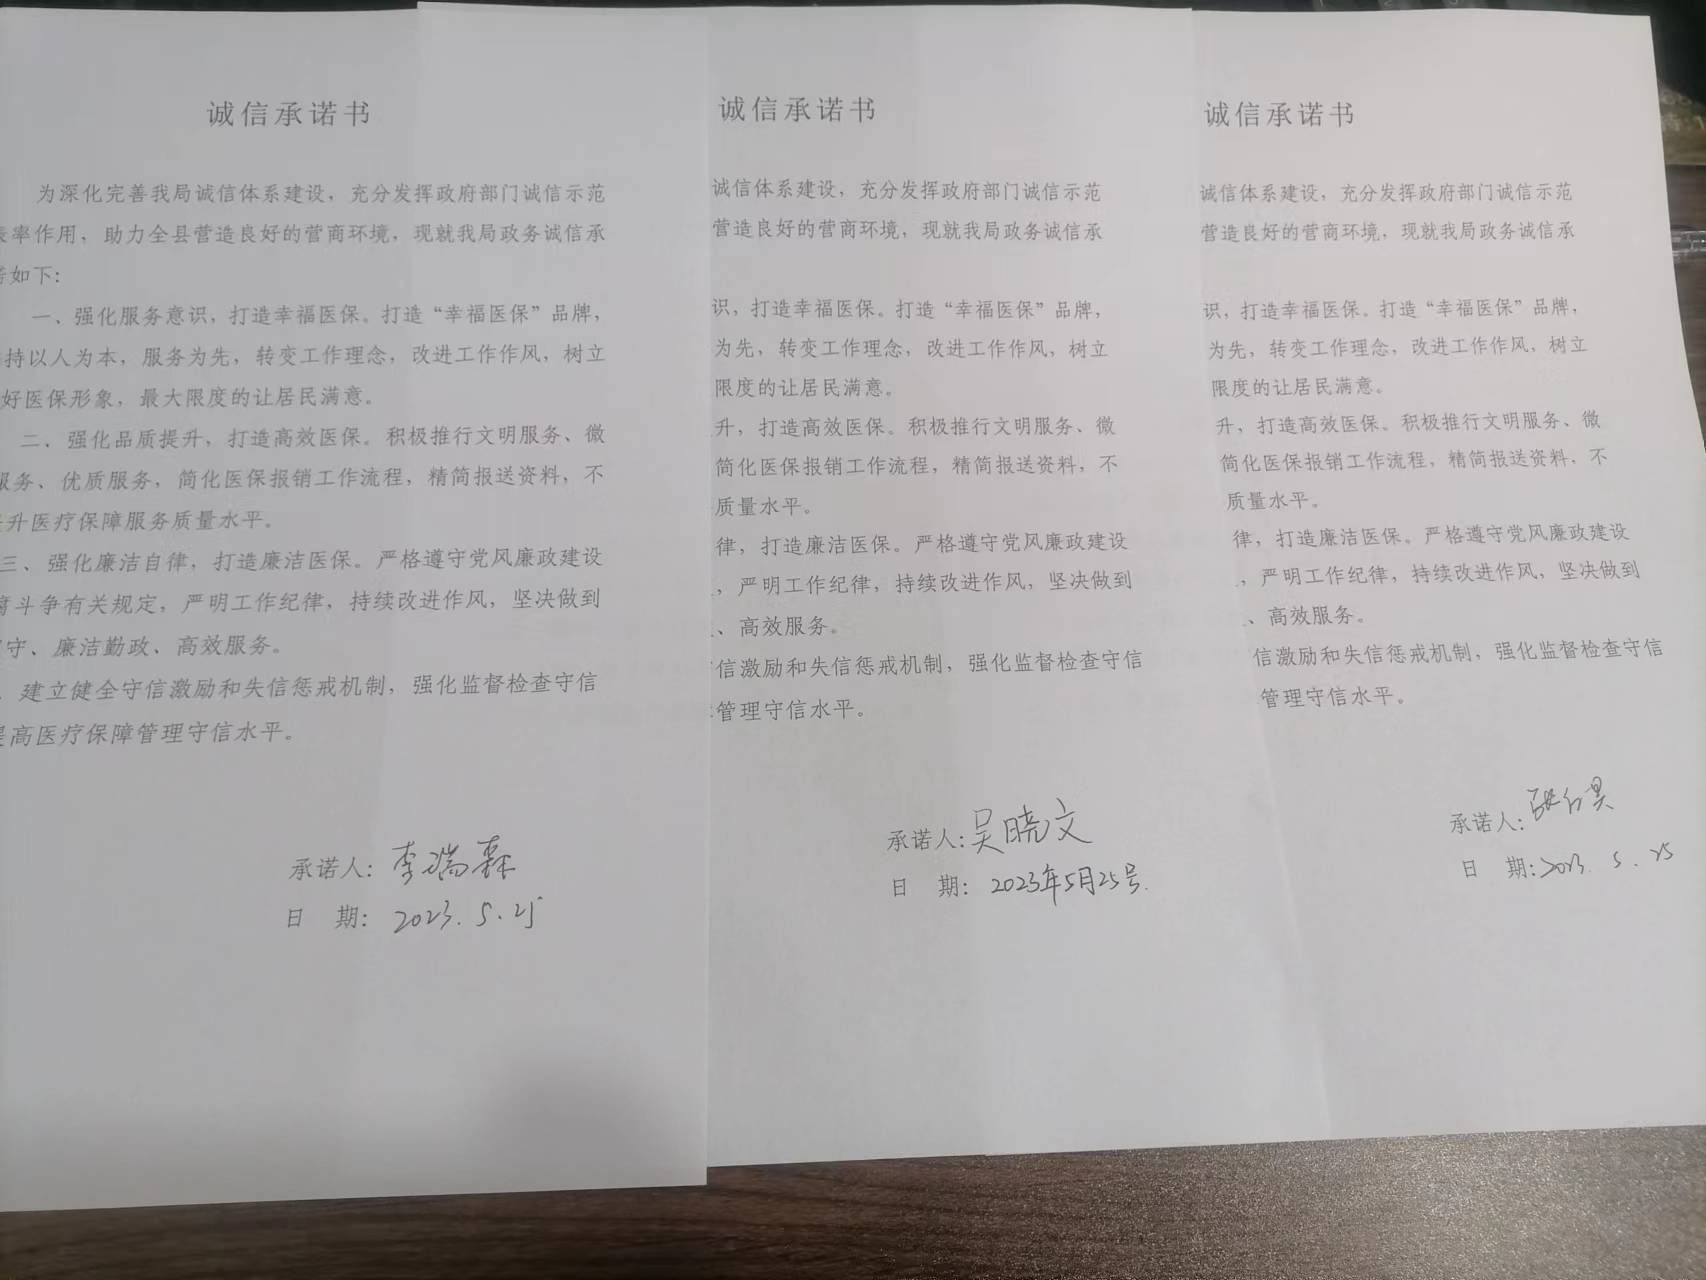 诚信承诺书
为深化完善我局诚信体系建设，充分发挥政府部门诚信示范
表率作用，助力全县营造良好的营商环境，现就我局政务诚信承
诺如下：
一、强化服务意识，打造幸福医保。打造“幸福医保”品牌，
持以人为本，服务为先，转变工作理念，改进工作作风，树立
好医保形象，最大限度的让居民满意。
二、强化品质提升，打造高效医保。积极推行文明服务、微
服务、优质服务，简化医保报销工作流程，精简报送资料，不
升医疗保障服务质量水平。
三、强化廉洁自律，打造廉洁医保。严格遵守党风廉政建设
腐斗争有关规定，严明工作纪律，持续改进作风，坚决做到
守、廉洁勤政、高效服务。
、建立健全守信激励和失信惩戒机制，强化监督检查守信
提高医疗保障管理守信水平。
承诺人：李瑞森
日 期：2023.5.25
诚信承诺书
诚信体系建设，充分发挥政府部门诚信示范
营造良好的营商环境，现就我局政务诚信承
识，打造幸福医保。打造“幸福医保”品牌，
为先，转变工作理念，改进工作作风，树立
限度的让居民满意。
升，打造高效医保。积极推行文明服务、微
简化医保报销工作流程，精简报送资料，不
质量水平。
律，打造廉洁医保。严格遵守党风廉政建设
，严明工作纪律，持续改进作风，坚决做到
、高效服务。
信激励和失信惩戒机制，强化监督检查守信
管理守信水平。
承诺人：吴晓文
日 期：2023年5月25号.
诚信承诺书
诚信体系建设，充分发挥政府部门诚信示范
营造良好的营商环境，现就我局政务诚信承
识，打造幸福医保。打造“幸福医保”品牌，
为先，转变工作理念，改进工作作风，树立
限度的让居民满意。
升，打造高效医保。积极推行文明服务、微
简化医保报销工作流程，精简报送资料，不
质量水平。
律，打造廉洁医保。严格遵守党风廉政建设
，严明工作纪律，持续改进作风，坚决做到
、高效服务。
信激励和失信惩戒机制，强化监督检查守信
管理守信水平。
承诺人：
日 期：2023.5.25